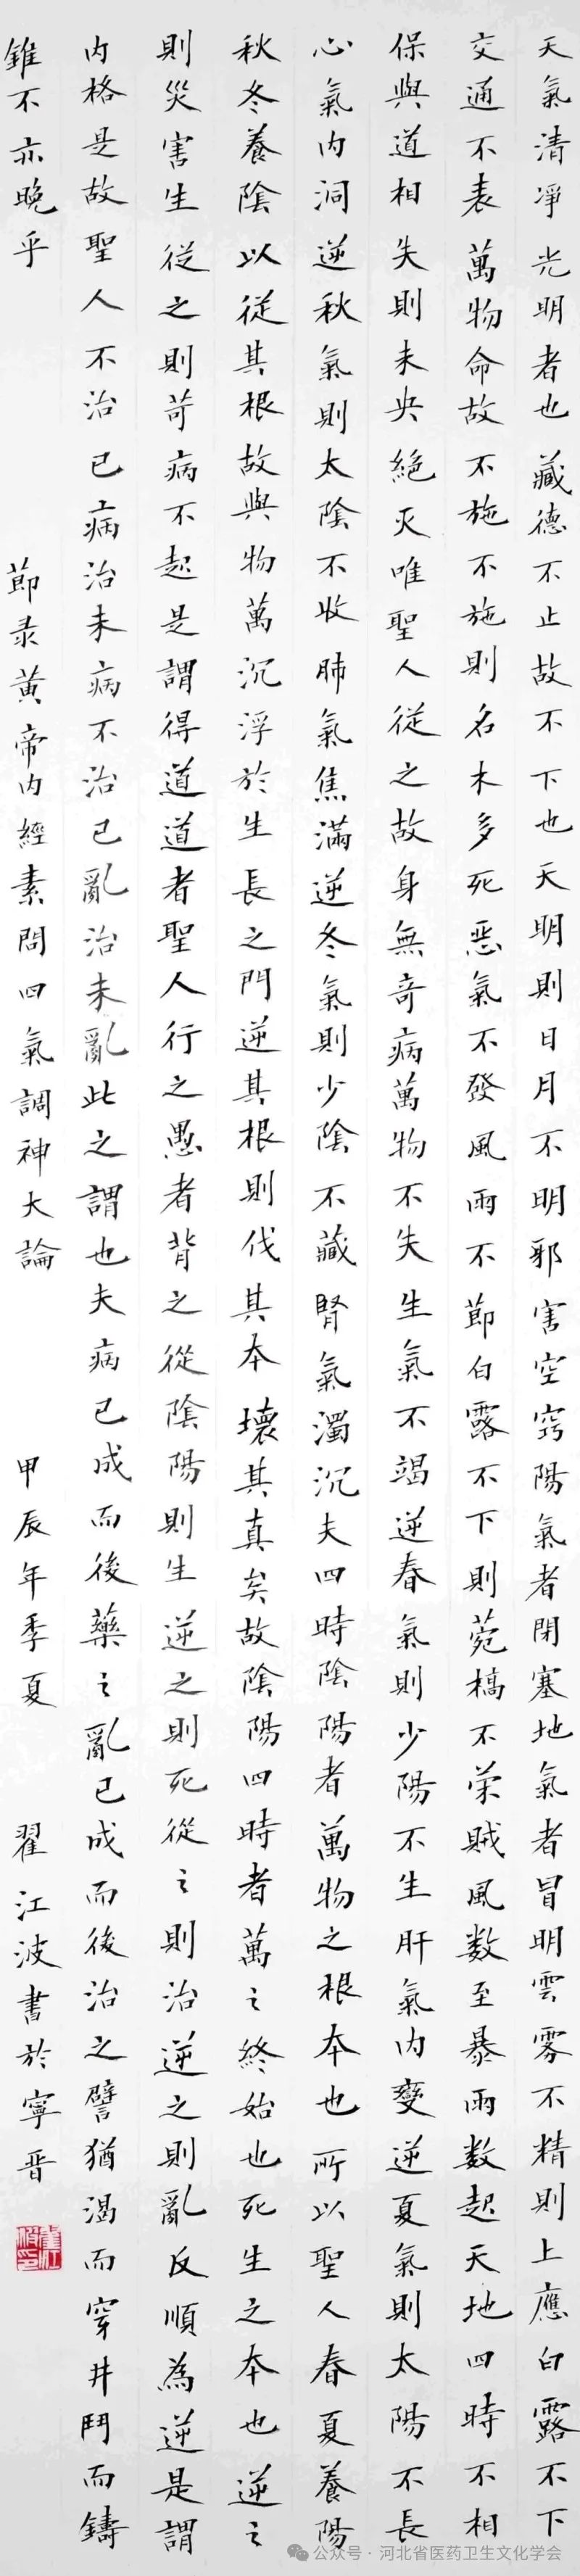 天氣清凈光明者也藏德不止故不下也天明則日月不明邪害空窍陽氣者閉塞地氣者冒明雲雾不精則上應白露不下
交通不表萬物命故不施不施則名木多死惡氣不發風雨不節白露不下則菀槁不荣賊風数至暴雨数起天地四時不相
保與道相失則未央絕灭唯聖人從之故身無奇病萬物不失生氣不竭逆春氣則少陽不生肝氣内變逆夏氣則太陽不長
心氣内洞逆秋氣則太陰不收肺氣焦滿逆冬氣則少陰不藏腎氣濁沉夫四時陰陽者萬物之根本也所以聖人春夏養陽
秋冬養陰以從其根故與物萬沉浮於生長之門逆其根則伐其本壞其真矣故陰陽四時者萬之終始也死生之本也逆之
則災害生從之則苛病不起是謂得道道者聖人行之愚者背之從陰陽則生逆之則死從之則治逆之則亂反順為逆是謂
内格是故聖人不治已病治未病不治已亂治未亂此之謂也夫病已成而後藥之亂已成而後治之譬猶渴而穿井鬥而鑄
錐不亦晚乎 節录黄帝内經素問四氣調神大論 甲辰年季夏 翟江波書於寧晋
公众号·河北省医药卫生文化学会